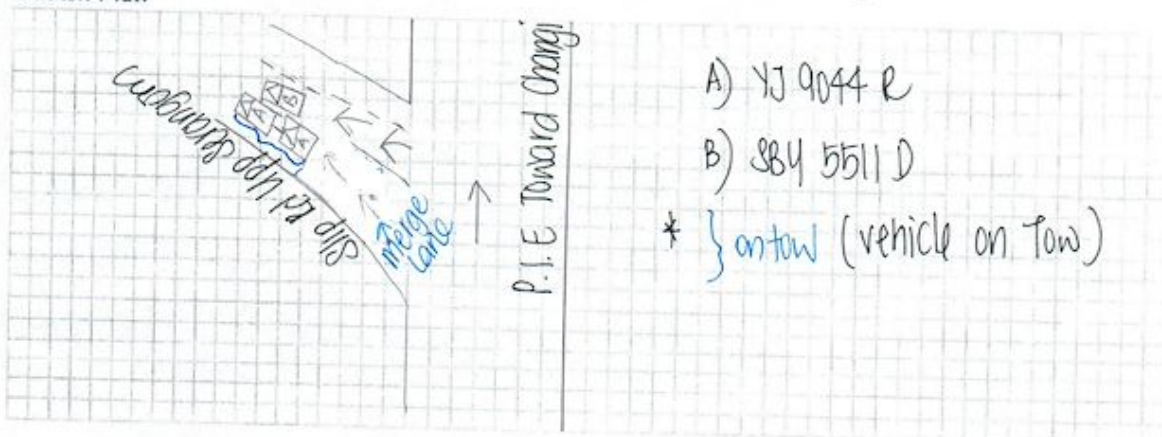 Slip Rd Upp Serangoon
A
A
B
Merge
Lane
P.I.E Toward Changi
A) YJ 9044 R
B) SBY 5511 D
* } on tow (vehicle on Tow)